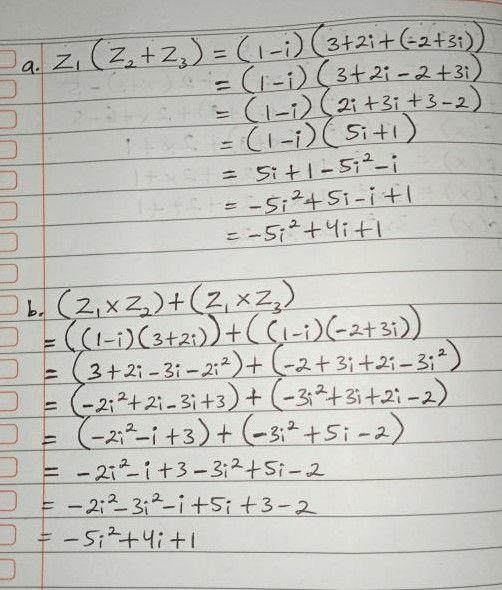 a. Z₁ (Z₂ + Z₃) = (1-i) (3+2i + (-2+3i))
= (1-i) (3+2i - 2 + 3i)
= (1-i) (2i + 3i + 3 - 2)
= (1-i) (5i + 1)
= 5i + 1 - 5i² - i
= -5i² + 5i - i + 1
= -5i² + 4i + 1
b. (Z₁ × Z₂) + (Z₁ × Z₃)
= ((1-i)(3+2i)) + ((1-i)(-2+3i))
= (3+2i - 3i - 2i²) + (-2 + 3i + 2i - 3i²)
= (-2i² + 2i - 3i + 3) + (-3i² + 3i + 2i - 2)
= (-2i² - i + 3) + (-3i² + 5i - 2)
= -2i² - i + 3 - 3i² + 5i - 2
= -2i² - 3i² - i + 5i + 3 - 2
= -5i² + 4i + 1